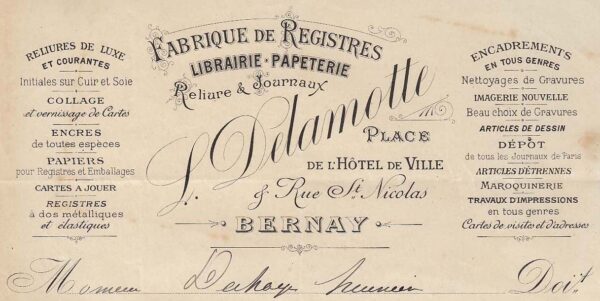 RELIURES DE LUXE
ET COURANTES
Initiales sur Cuir et Soie
COLLAGE
et vernissage de Cartes
ENCRES
de toutes espèces
PAPIERS
pour Registres et Emballages
CARTES A JOUER
REGISTRES
à dos métalliques
et élastiques
FABRIQUE DE REGISTRES
LIBRAIRIE * PAPETERIE
Reliure & Journaux
L. Delamotte
PLACE
DE L'HÔTEL DE VILLE
& Rue St Nicolas
BERNAY
ENCADREMENTS
EN TOUS GENRES
Nettoyages de Gravures
IMAGERIE NOUVELLE
Beau choix de Gravures
ARTICLES DE DESSIN
DÉPÔT
de tous les Journaux de Paris
ARTICLES D'ÉTRENNES
MAROQUINERIE
TRAVAUX D'IMPRESSIONS
en tous genres
Cartes de visites et d'adresses
Monsieur Doit